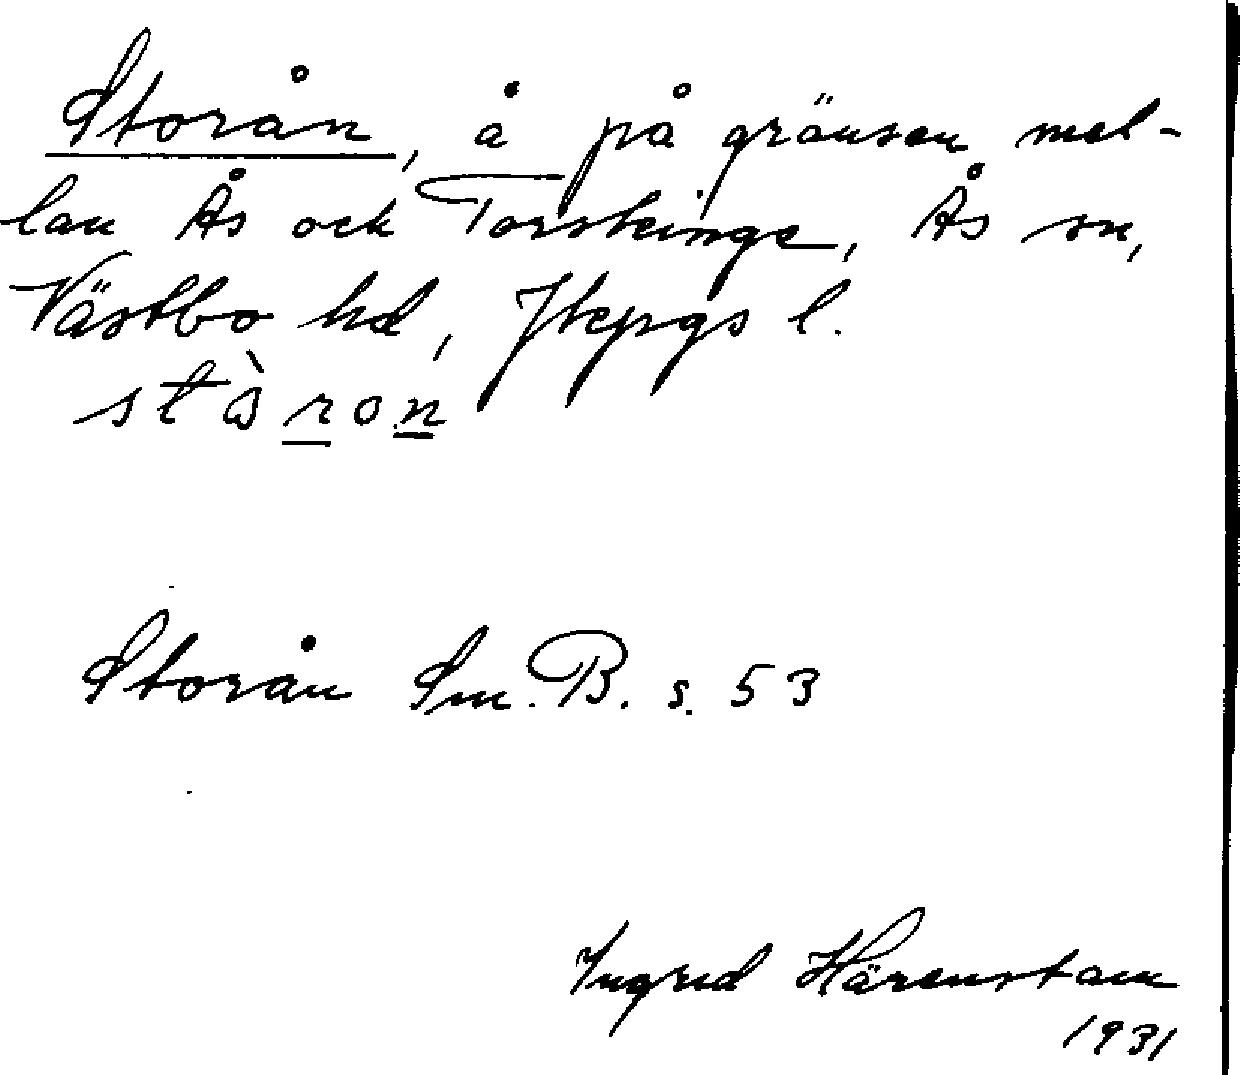 Storån, å på gränsen mel-
lan Ås och Torskinge, Ås sn,
Västbo hd, Jkpgs l.
stòron
Storån Sm. B. s. 53
Ingrid Härenstam
1931